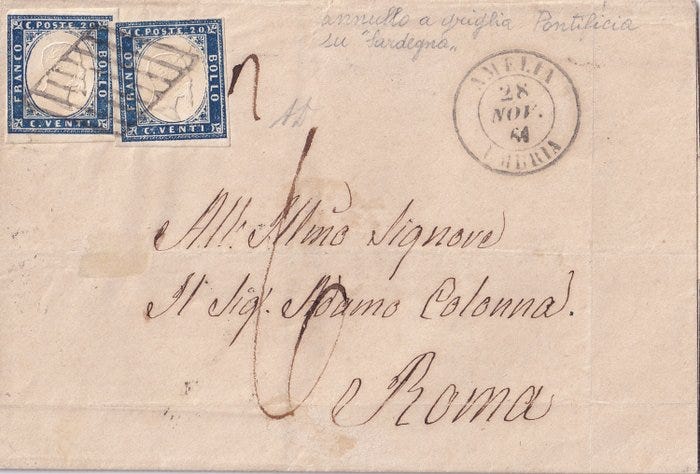 C. POSTE. 20
FRANCO
BOLLO
C. VENTI
C. POSTE. 20
FRANCO
BOLLO
C. VENTI
annullo a griglia Pontificia
su "Sardegna"
AMELIA
28
NOV.
61
UMBRIA
AD
6
All' Illmo Signore
Il Sig. Adamo Colonna.
Roma